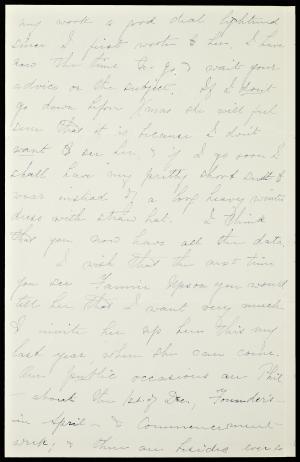 my work a good deal lightened
since I first wrote to her. I have
now the time to go, & want your
advice on the subject. If I don't
go down before Xmas she will feel
sure that it is because I don't
want to see her, & if I go soon I
shall have my pretty short suit to
wear instead of a long heavy winter
dress with straw hat. I think
that you now have all the data.
I wish that the next time
you see Fannie you would
tell her that I want very much
to invite her up here this my
last year, when she can come.
Our public occasions are Phil
- about the 1st of Dec, Founder's -
in April - & Commencement-
week, & there are besides ever so